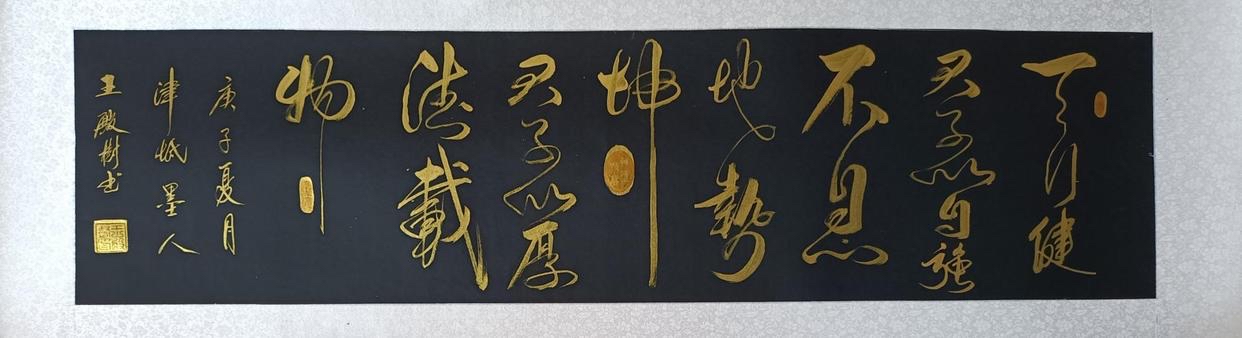 天行健
君子以自强
不息
地势
坤
君子以厚
德载
物
庚子夏月
津
墨人
王殿树书